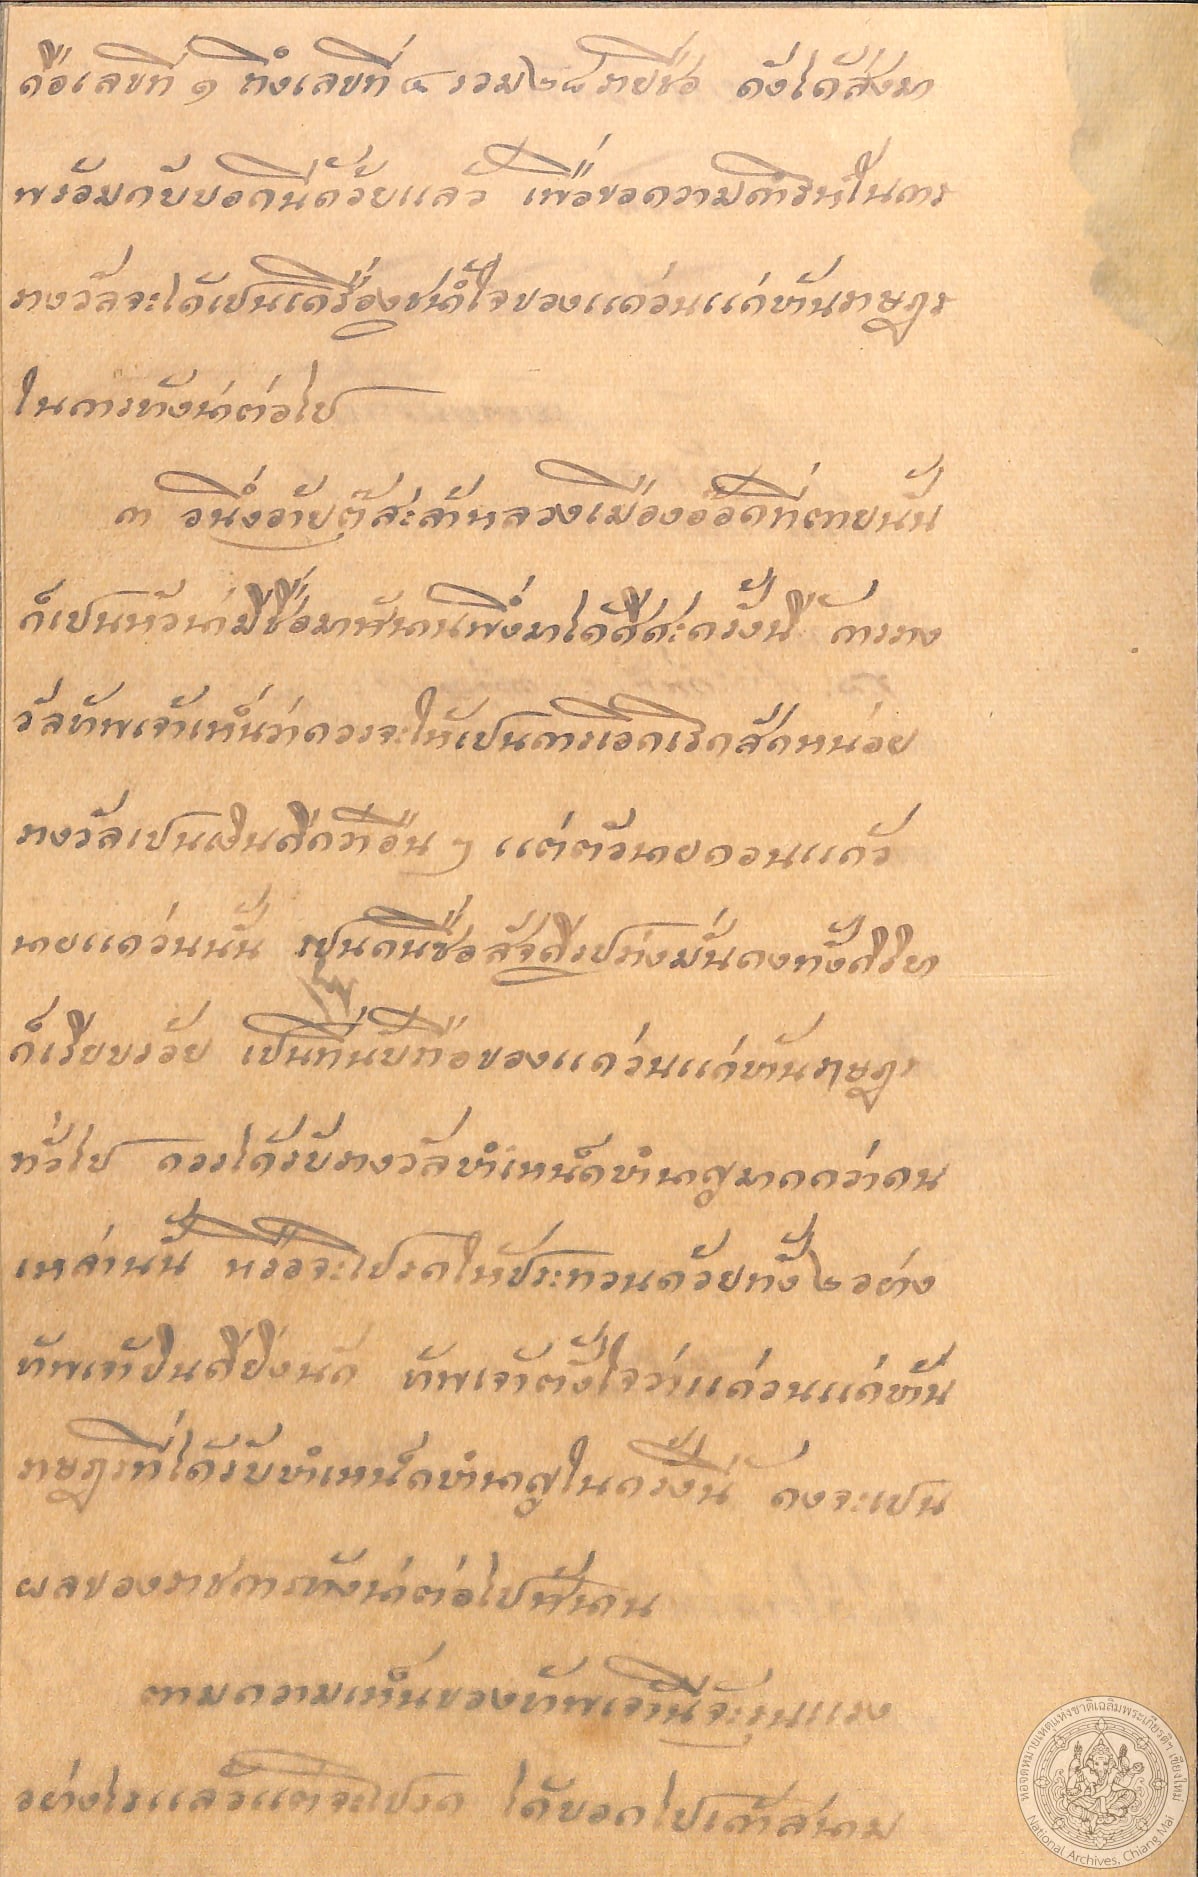 คือเลขที่ ๑ ถึงเลขที่ ๔ รวม ๒๘ รายชื่อ ดังได้ส่งมา
พร้อมกับบอกนี้ด้วยแล้ว เพื่อขอความดำริห์ในการ
รางวัลจะได้เปนเครื่องชนำใจของแคว่นแก่บ้านราษฎร
ในการทังน่าต่อไป
๓ อนึ่งอ้าย สล่าหลวงเมืองออดที่ตายนั้น
ก็เปนหัวน่ามีชื่อมาช้านานพึ่งมาได้ศีศะครั้งนี้ การราง
วัลข้าพเจ้าเห็นว่าควรจะให้เปนการเอิกเริกสักหน่อย
รางวัลเปนเงินดีกว่าอื่น ๆ แต่ตัวนายกอนแก้ว
นายแคว่นนั้น เปนคนซื่อสัจสุีรปร่างมั่นคงทั้งกิริยา
ก็เรียบร้อย เปนที่นับถือของแคว่นแก่บ้านราษฎร
ทั่วไป ควรได้รับรางวัลบำเหน็จบำนาญมากกว่าคน
เหล่านั้น หรือจะโปรดให้ประทวนด้วยทั้ง ๒ อย่าง
ข้าพเจ้ายินดียิ่งนัก ข้าพเจ้าตั้งใจว่าแคว่นแก่บ้าน
ราษฎรที่ได้รับบำเหน็จบำนาญในครั้งนี้ คงจะเปน
ผลของราชการทังน่าต่อไปช้านาน
ตามความเห็นของข้าพเจ้านี้จะรุนแรง
อย่างไรแล้วแต่จะโปรด ได้บอกไปเค้าสนาม
หอจดหมายเหตุแห่งชาติเฉลิมพระเกียรติฯ เชียงใหม่
National Archives, Chiang Mai